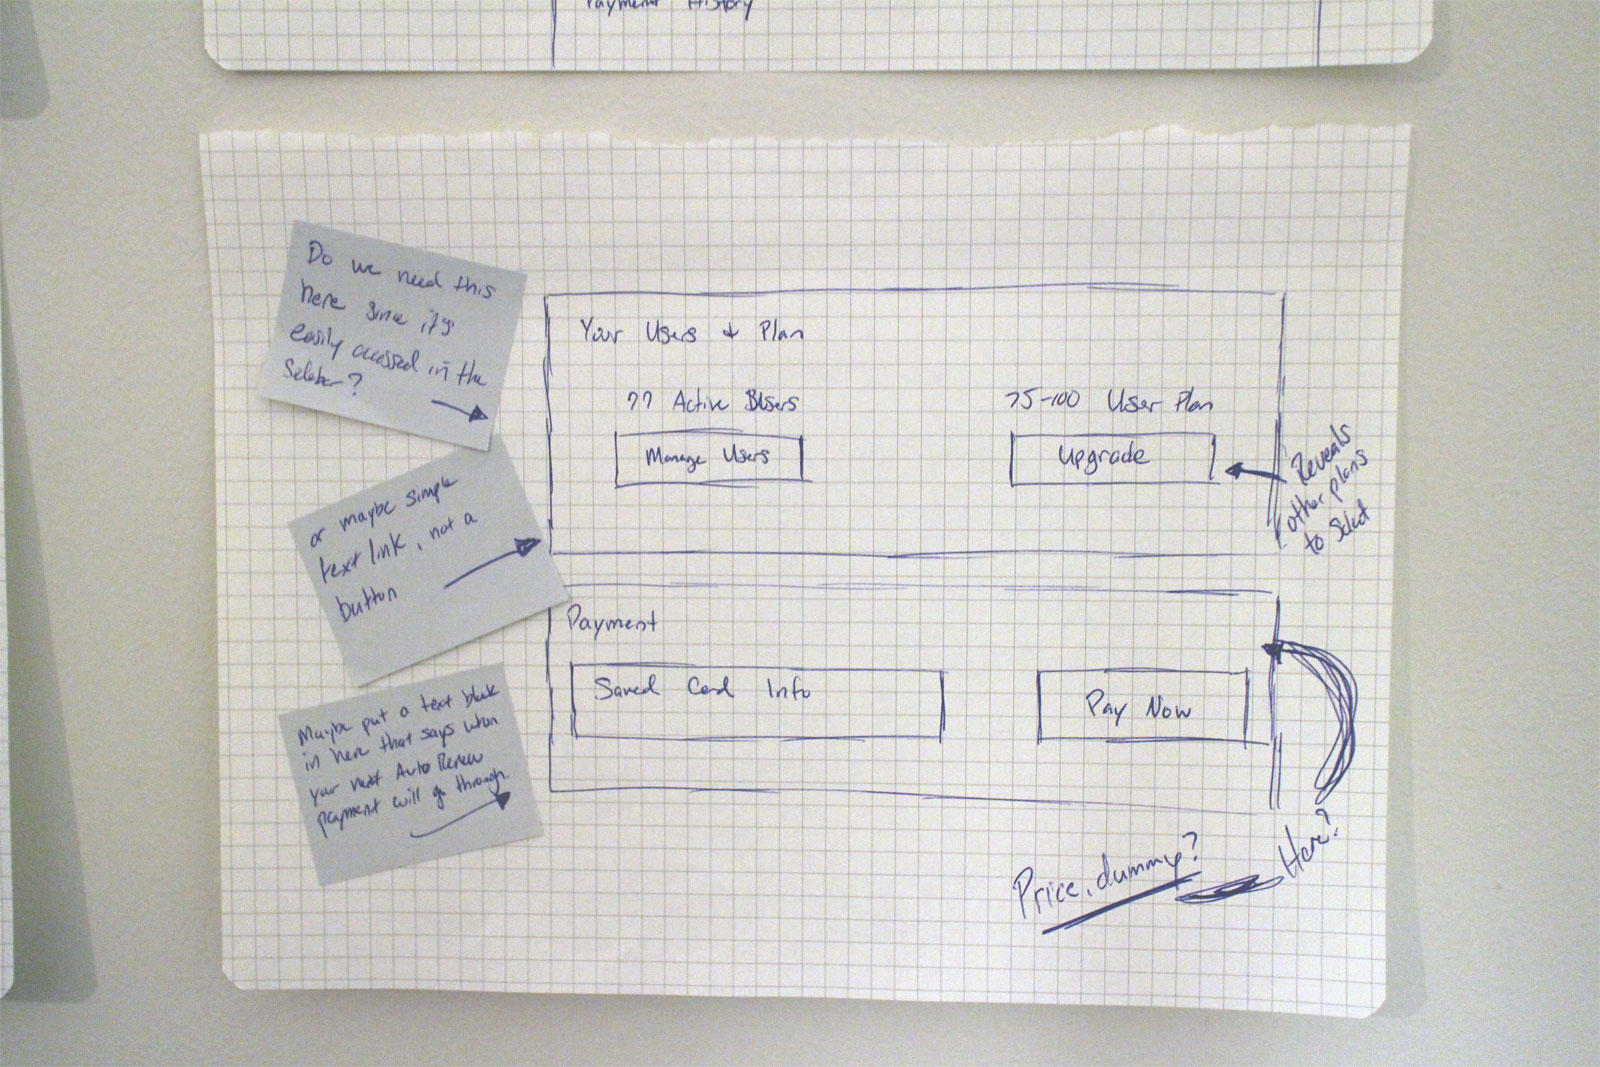 Payment History
Do we need this
here since it's
easily accessed in the
Sidebar?
or maybe simple
text link, not a
button
Maybe put a text block
in here that says when
your next Auto Renew
payment will go through.
Your Users + Plan
77 Active Users
Manage Users
75-100 User Plan
Upgrade
Reveals
other plans
to Select
Payment
Saved Card Info
Pay Now
Price, dummy?
Here?